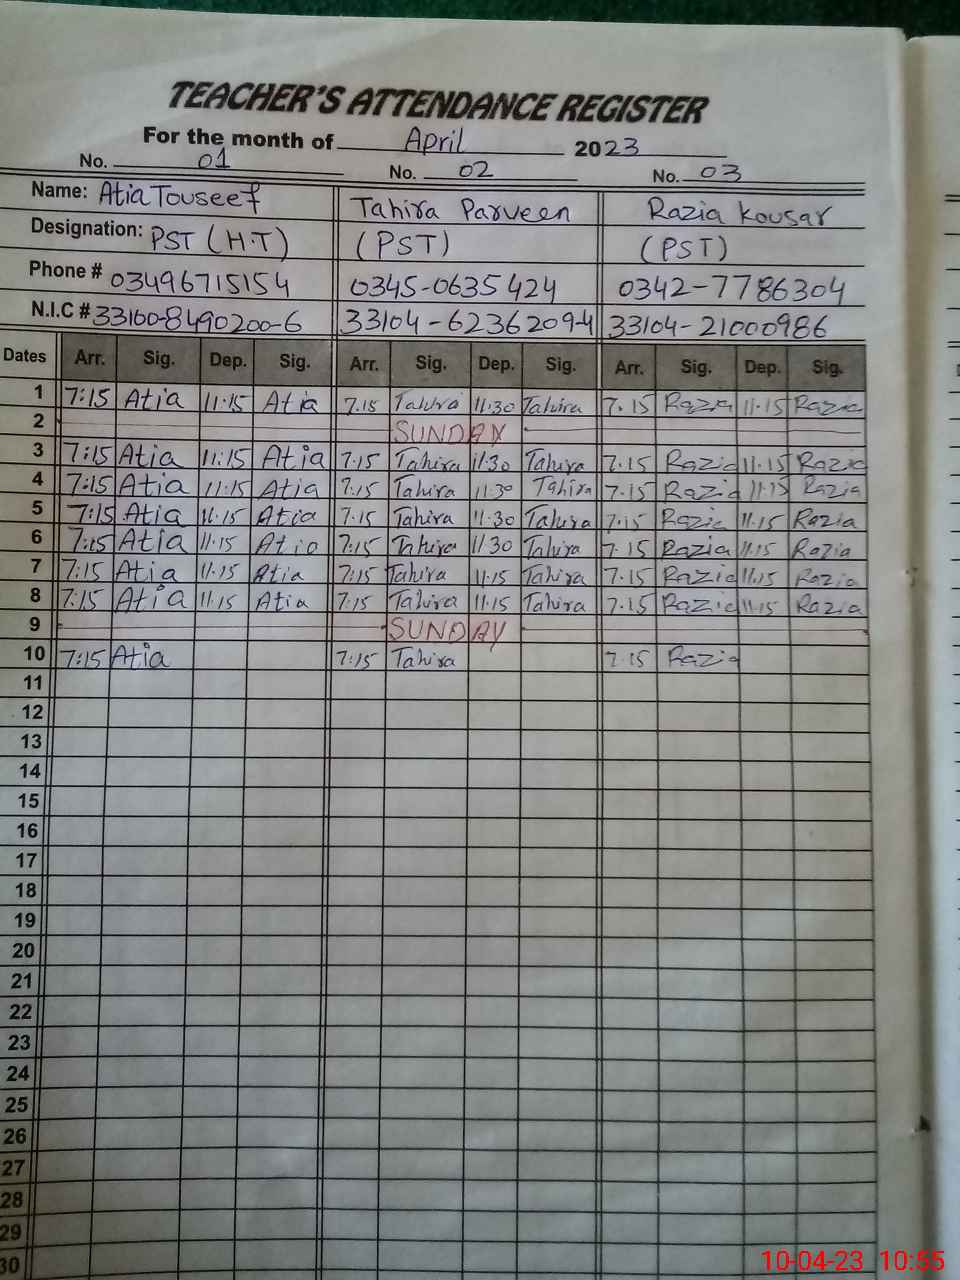 TEACHER'S ATTENDANCE REGISTER
For the month of April 2023
No. 01 No. 02 No. 03
Name: Atia Touseef Tahira Parveen Razia Kousar
Designation: PST (H.T) (PST) (PST)
Phone # 03496715154 0345-0635424 0342-7786304
N.I.C # 33100-8490200-6 33104-6236209-4 33104-21000986
Dates Arr. Sig. Dep. Sig. Arr. Sig. Dep. Sig. Arr. Sig. Dep. Sig.
1 7:15 Atia 11:15 Atia 7.15 Tahira 11:30 Tahira 7.15 Razia 11.15 Razia
2 SUNDAY
3 7:15 Atia 11:15 Atia 7.15 Tahira 11:30 Tahira 7.15 Razia 11.15 Razia
4 7:15 Atia 11:15 Atia 7.15 Tahira 11:30 Tahira 7.15 Razia 11.15 Razia
5 7:15 Atia 11.15 Atia 7.15 Tahira 11.30 Tahira 7.15 Razia 11.15 Razia
6 7:15 Atia 11.15 Atia 7:15 Tahira 11.30 Tahira 7.15 Razia 11.15 Razia
7 7:15 Atia 11.15 Atia 7:15 Tahira 11.15 Tahira 7.15 Razia 11.15 Razia
8 7:15 Atia 11.15 Atia 7:15 Tahira 11.15 Tahira 7.15 Razia 11.15 Razia
9 SUNDAY
10 7:15 Atia 7:15 Tahira 7.15 Razia
11
12
13
14
15
16
17
18
19
20
21
22
23
24
25
26
27
28
29
30
10-04-23 10:55